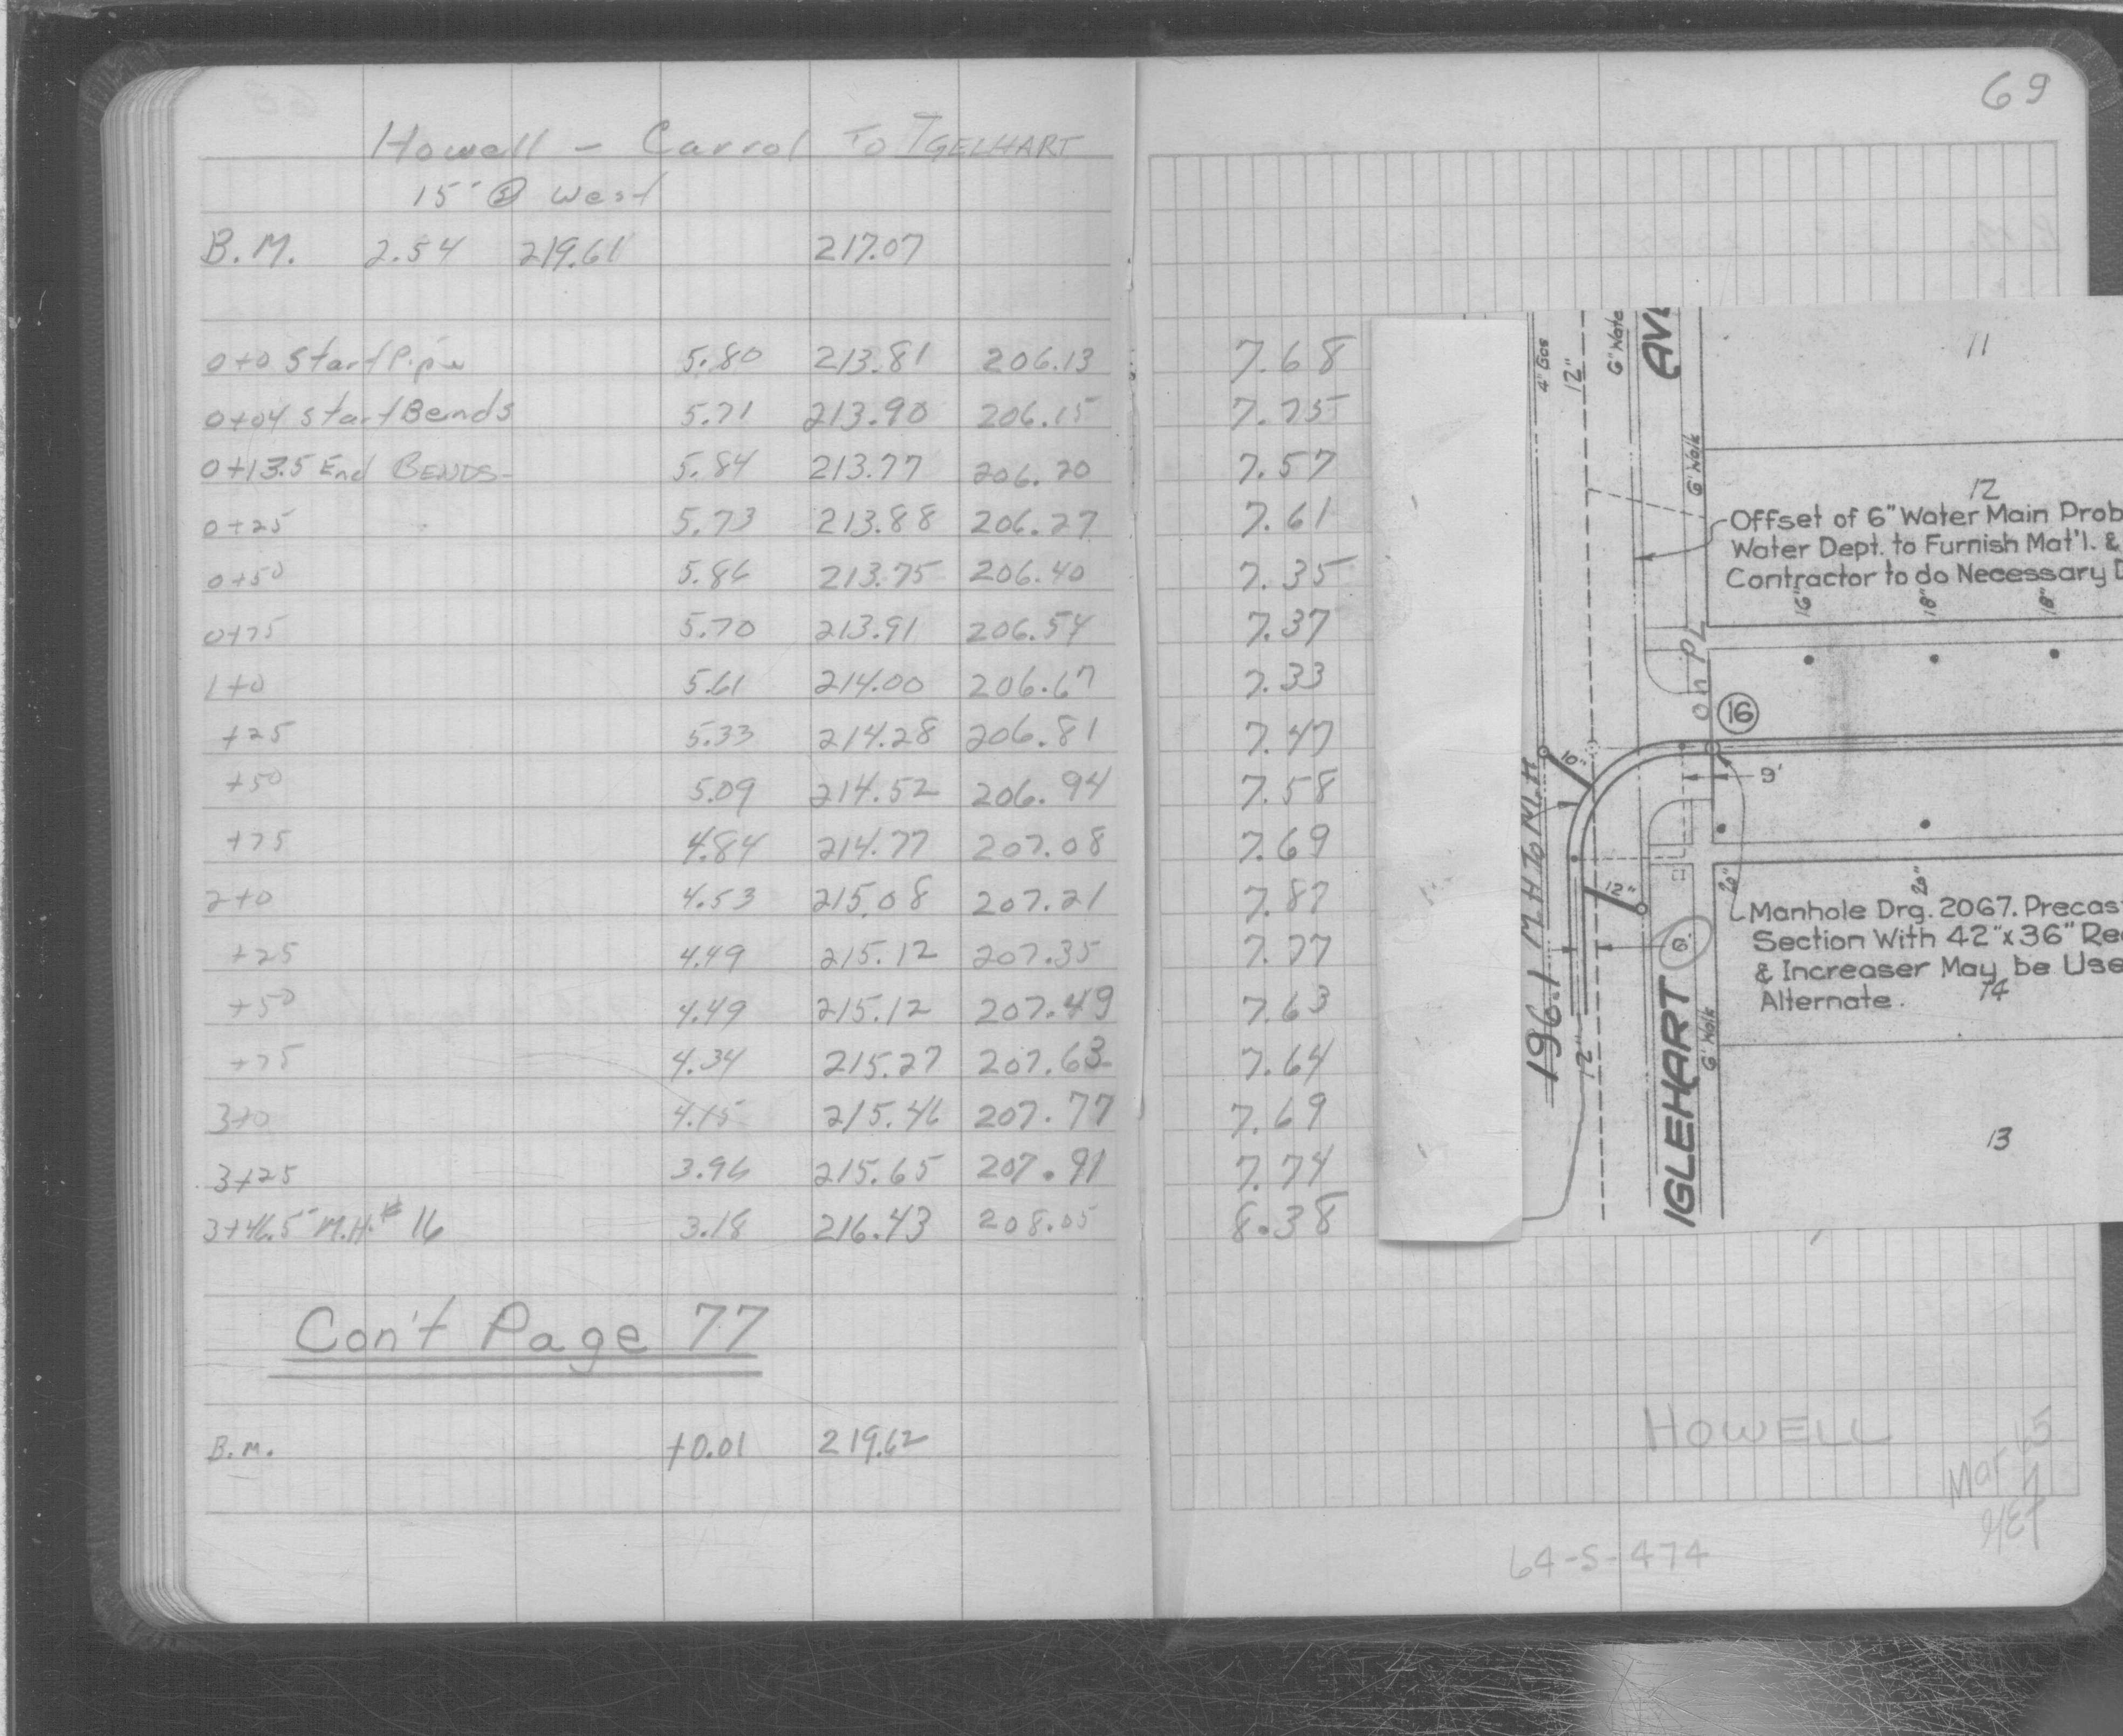 69
Howell - Carrol To IGELHART
15' @ West
B.M. 2.54 219.61 217.07
0+0 Start Pipe 5.80 213.81 206.13 7.68
0+04 Start Bends 5.71 213.90 206.15 7.75
0+13.5 End BENDS- 5.84 213.77 206.20 7.57
0+25 5.73 213.88 206.27 7.61
0+50 5.86 213.75 206.40 7.35
0+75 5.70 213.91 206.54 7.37
1+0 5.61 214.00 206.67 7.33
+25 5.33 214.28 206.81 7.47
+50 5.09 214.52 206.94 7.58
+75 4.84 214.77 207.08 7.69
2+0 4.53 215.08 207.21 7.87
+25 4.49 215.12 207.35 7.77
+50 4.49 215.12 207.49 7.63
+75 4.34 215.27 207.63 7.64
3+0 4.15 215.46 207.77 7.69
3+25 3.96 215.65 207.91 7.74
3+46.5 M.H.# 16 3.18 216.43 208.05 8.38
Con't Page 77
B.M. +0.01 219.62
4" Gas
12"
6" Wate
AVE
11
6' Walk
12
Offset of 6" Water Main Prob
Water Dept. to Furnish Mat'l. &
Contractor to do Necessary D
16"
18"
18"
on PL
16
10"
9'
196.1 MH To MH
12"
6'
20"
20"
Manhole Drg. 2067. Precast
Section With 42"x36" Re
& Increaser May be Use
Alternate.
14
12"
IGLEHART
6' Walk
13
HOWELL
Mar 65
64-S-474